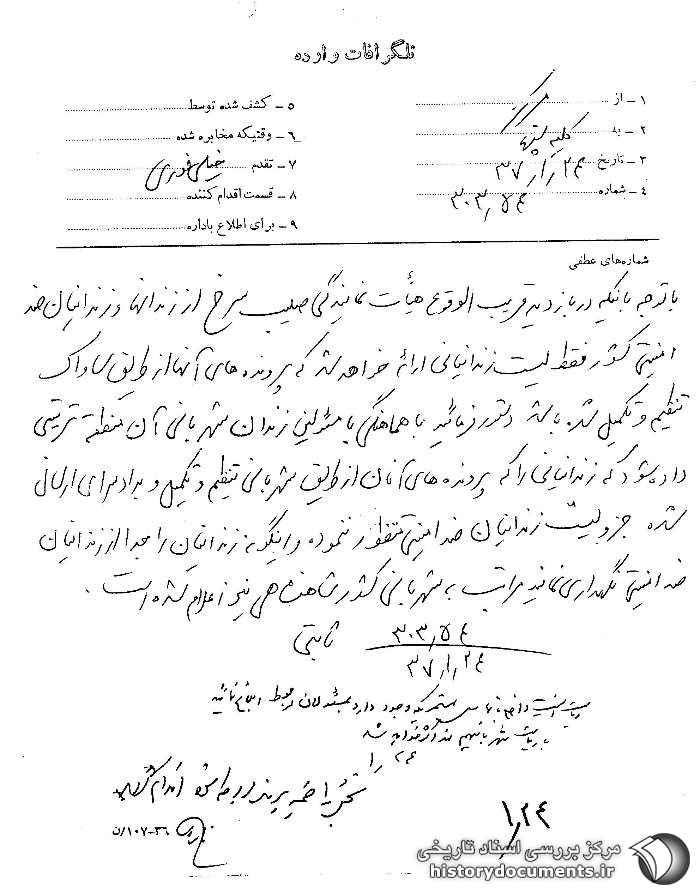 تلگرافات وارده
۱ ـ از مرکز
۲ ـ به کلیه
۳ ـ تاریخ ۳۷/۱/۲۴
۴ ـ شماره
۵ ـ کشف شده توسط
۶ ـ وقتیکه مخابره شده
۷ ـ تقدم خیلی فوری
۸ ـ قسمت اقدام کننده
۹ ـ برای اطلاع باداره
شماره‌های عطفی
با توجه باینکه در بازدید قریب الوقوع هیأت نمایندگی صلیب سرخ از زندانها و زندانیان ضد
امنیتی کشور فقط لیست زندانیانی ارائه خواهد شد که پرونده های آنها از طریق ساواک
تنظیم و تکمیل شده باشد دستور فرمائید با هماهنگی با مسئولین زندان شهربانی آن منطقه ترتیبی
داده شود که زندانیانی را که پرونده های آنان از طریق شهربانی تنظیم و تکمیل و بدادسرا ارسال
شده جزو لیست زندانیان ضد امنیتی منظور ننموده و اینگونه زندانیان را جدا از زندانیان
ضد امنیتی نگهداری نمایند مراتب به شهربانی کشور شاهنشاهی نیز اعلام شده است.
ثابتی
۳۷/۱/۲۴
ریاست
۱/۲۴
۱/۲۴
ن/۱۰۷-۳۶
مرکز بررسی اسناد تاریخی
historydocuments.ir